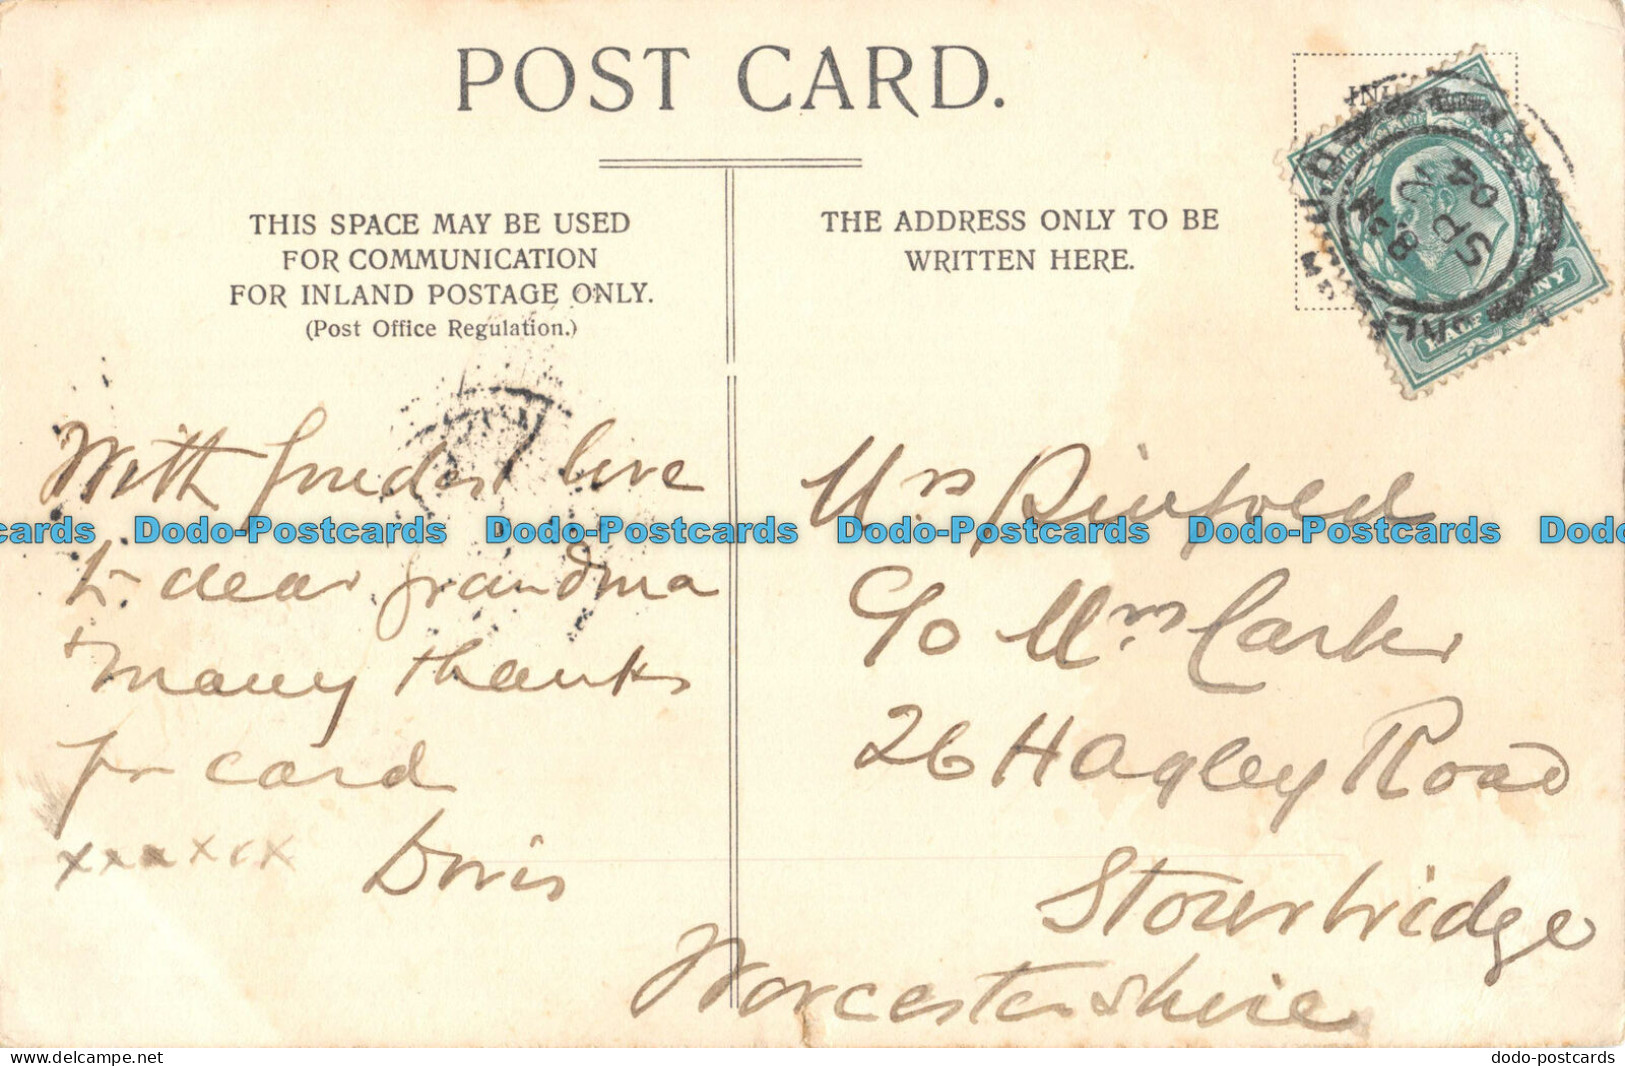 POST CARD.
THIS SPACE MAY BE USED
FOR COMMUNICATION
FOR INLAND POSTAGE ONLY.
(Post Office Regulation.)
THE ADDRESS ONLY TO BE
WRITTEN HERE.
HALF PENNY
8
SP 2
04
With fondest love
to dear grandma
many thanks
for card
xxxxxx Doris
Mrs Pinfold
c/o Mrs Carter
26 Hagley Road
Stourbridge
Worcestershire
Dodo-Postcards Dodo-Postcards Dodo-Postcards Dodo-Postcards
www.delcampe.net
dodo-postcards